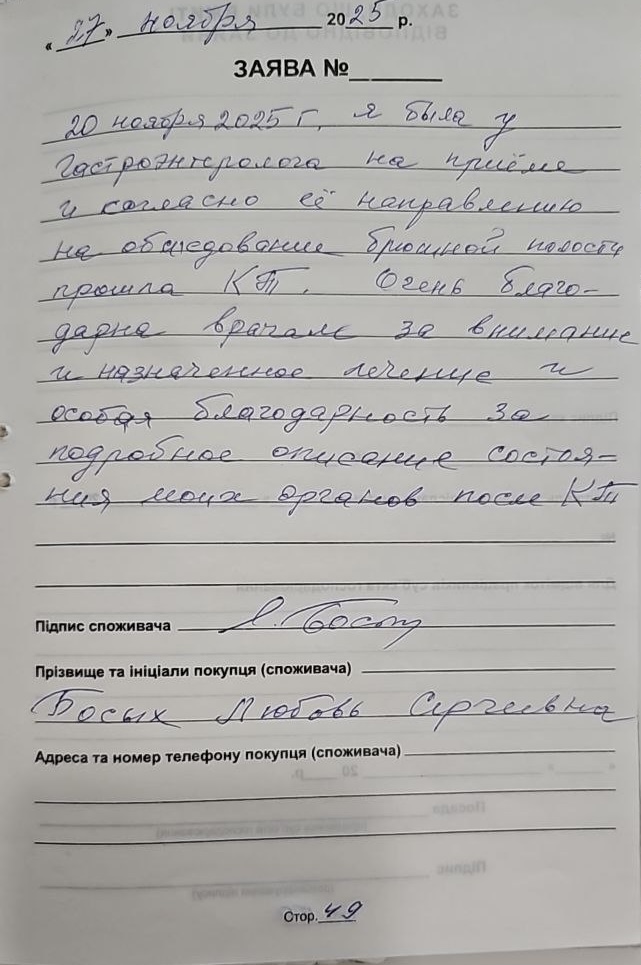 « 27 » ноября 2025 р.
ЗАЯВА №
20 ноября 2025 г. я была у
гастроэнтеролога на приёме
и согласно её направлению
на обследование брюшной полости
прошла КТ. Очень благо-
дарна врачам за внимание
и назначенное лечение и
особая благодарность за
подробное описание состоя-
ния моих органов после КТ
Підпис споживача
Прізвище та ініціали покупця (споживача)
Босых Любовь Сергеевна
Адреса та номер телефону покупця (споживача)
Стор. 49